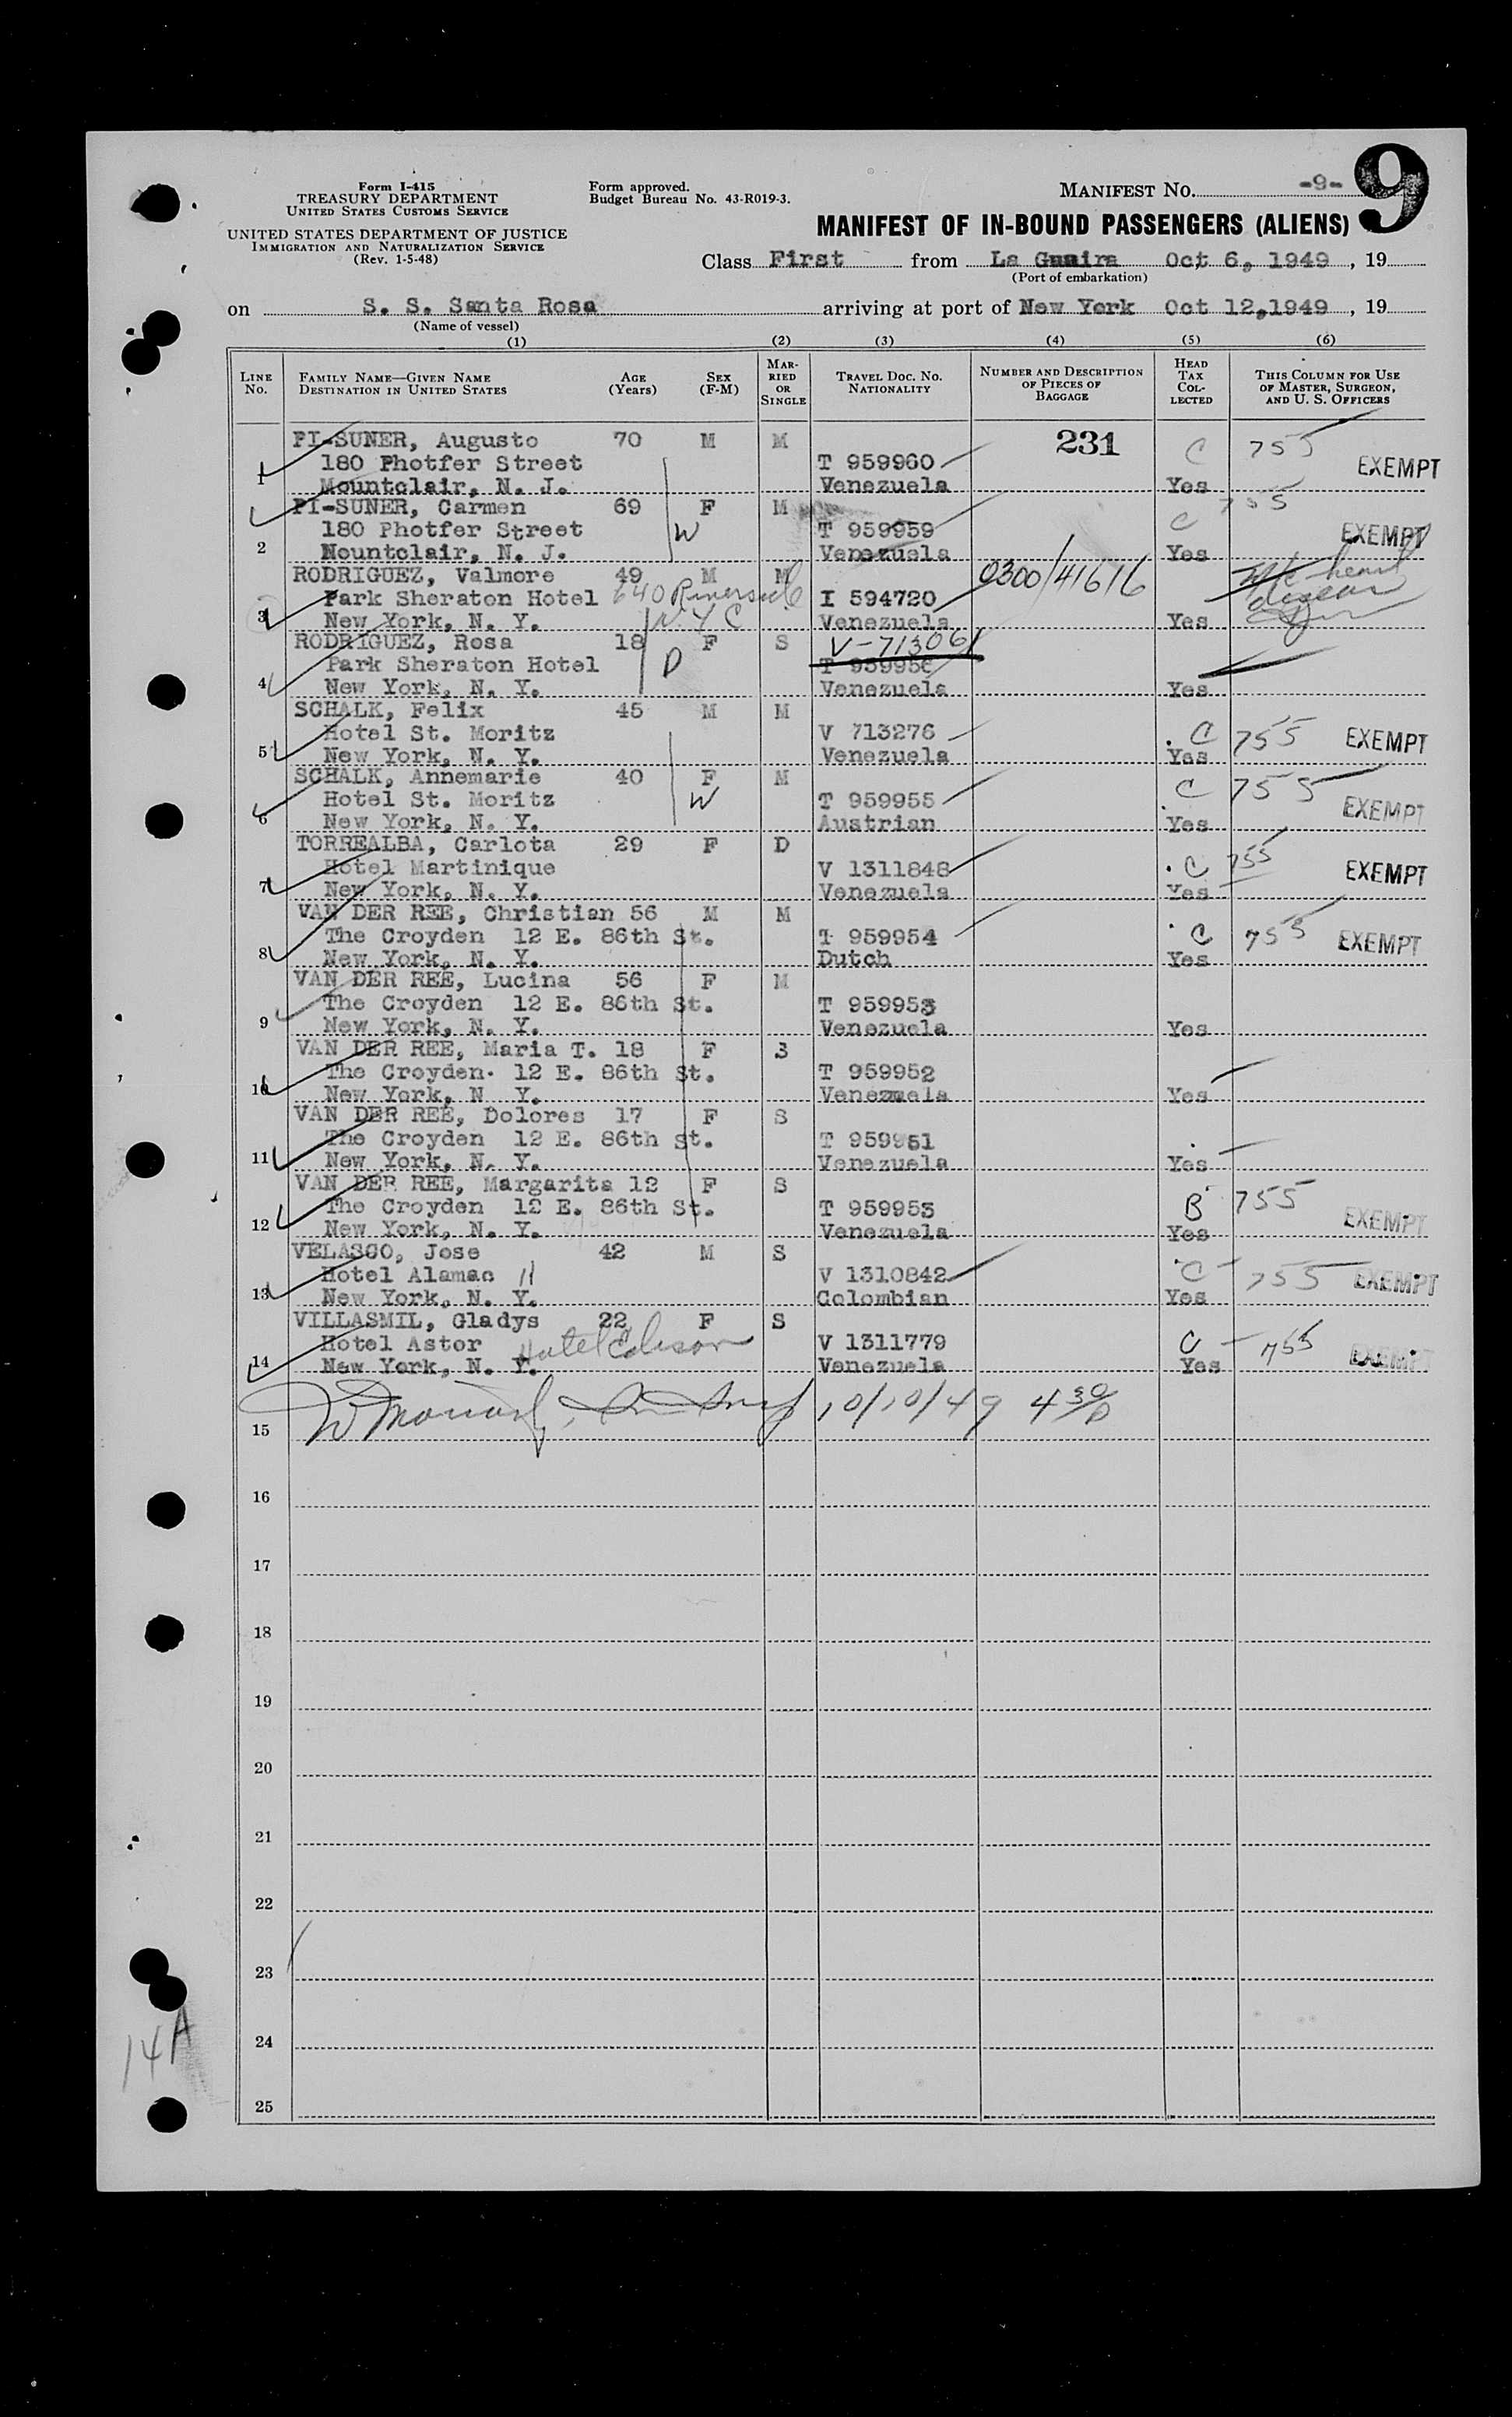 Form I-415
TREASURY DEPARTMENT
UNITED STATES CUSTOMS SERVICE
UNITED STATES DEPARTMENT OF JUSTICE
IMMIGRATION AND NATURALIZATION SERVICE
(Rev. 1-5-48)
Form approved.
Budget Bureau No. 43-R019-3.
MANIFEST NO. -9- 9
MANIFEST OF IN-BOUND PASSENGERS (ALIENS)
Class First from La Guaira Oct 6, 1949, 19
(Port of embarkation)
on S. S. Santa Rosa arriving at port of New York Oct 12,1949, 19
(Name of vessel)
(1) (2) (3) (4) (5) (6)
LINE No. FAMILY NAME—GIVEN NAME DESTINATION IN UNITED STATES AGE (Years) SEX (F-M) MARRIED OR SINGLE TRAVEL DOC. NO. NATIONALITY NUMBER AND DESCRIPTION OF PIECES OF BAGGAGE HEAD TAX COLLECTED THIS COLUMN FOR USE OF MASTER, SURGEON, AND U. S. OFFICERS
PI-SUNER, Augusto 70 M M 231 C 755
180 Photfer Street T 959960 EXEMPT
1 Mountclair, N. J. Venezuela Yes
PI-SUNER, Carmen 69 F M C 755
180 Photfer Street W T 959959 EXEMPT
2 Mountclair, N. J. Venezuela Yes
RODRIGUEZ, Valmore 49 M M 0300/41616 heart
Park Sheraton Hotel 640 Riverside I 594720 disease
3 New York, N. Y. N Y C Venezuela Yes
RODRIGUEZ, Rosa 18 F S V-713061
Park Sheraton Hotel D T 959956
4 New York, N. Y. Venezuela Yes
SCHALK, Felix 45 M M
Hotel St. Moritz V 713276 C 755 EXEMPT
5 New York, N. Y. Venezuela Yes
SCHALK, Annemarie 40 F M
Hotel St. Moritz W T 959955 C 755 EXEMPT
6 New York, N. Y. Austrian Yes
TORREALBA, Carlota 29 F D
Hotel Martinique V 1311848 C 755 EXEMPT
7 New York, N. Y. Venezuela Yes
VAN DER REE, Christian 56 M M
The Croyden 12 E. 86th St. T 959954 C 755 EXEMPT
8 New York, N. Y. Dutch Yes
VAN DER REE, Lucina 56 F M
The Croyden 12 E. 86th St. T 959953
9 New York, N. Y. Venezuela Yes
VAN DER REE, Maria T. 18 F S
The Croyden 12 E. 86th St. T 959952
10 New York, N Y. Venezuela Yes
VAN DER REE, Dolores 17 F S
The Croyden 12 E. 86th St. T 959951
11 New York, N. Y. Venezuela Yes
VAN DER REE, Margarita 12 F S
The Croyden 12 E. 86th St. T 959953 B 755 EXEMPT
12 New York, N. Y. Venezuela Yes
VELASCO, Jose 42 M S
Hotel Alamac V 1310842 C 755 EXEMPT
13 New York, N. Y. Colombian Yes
VILLASMIL, Gladys 22 F S
Hotel Astor Hotel Edison V 1311779 C 755 EXEMPT
14 New York, N. Y. Venezuela Yes
10/10/49 4 30
15
16
17
18
19
20
21
22
23
24
14A
25